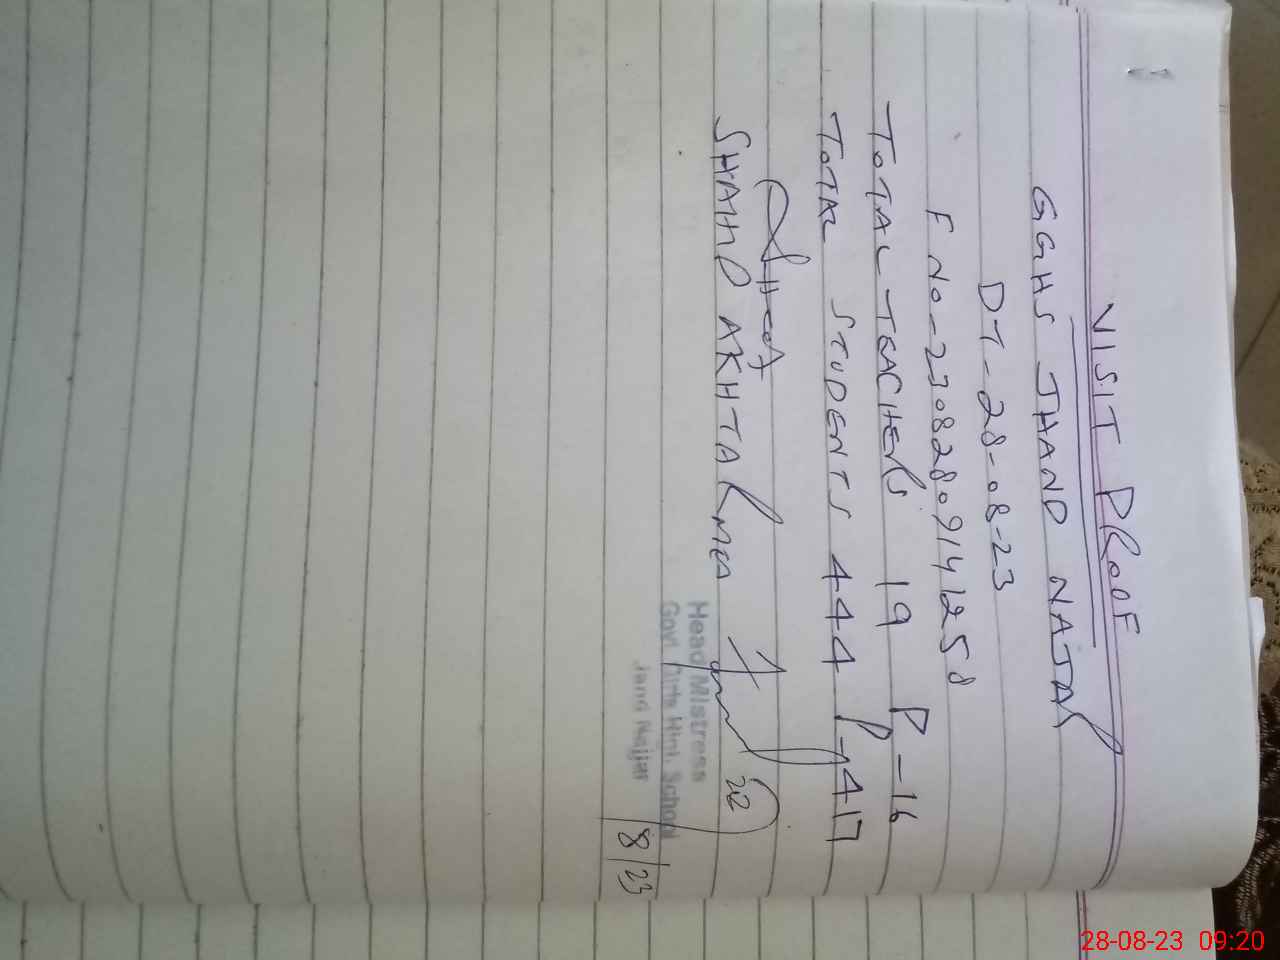 VISIT PROOF
GGHS JHAND NAJAR
DT-28-08-23
F NO-23082809141258
TOTAL TEACHERS 19 P-16
TOTAL STUDENTS 444 P-417
SHAHD AKHTAR MEA
Head Mistress
Govt. Girls High School
Jand Najjar
28/8/23
28-08-23 09:20